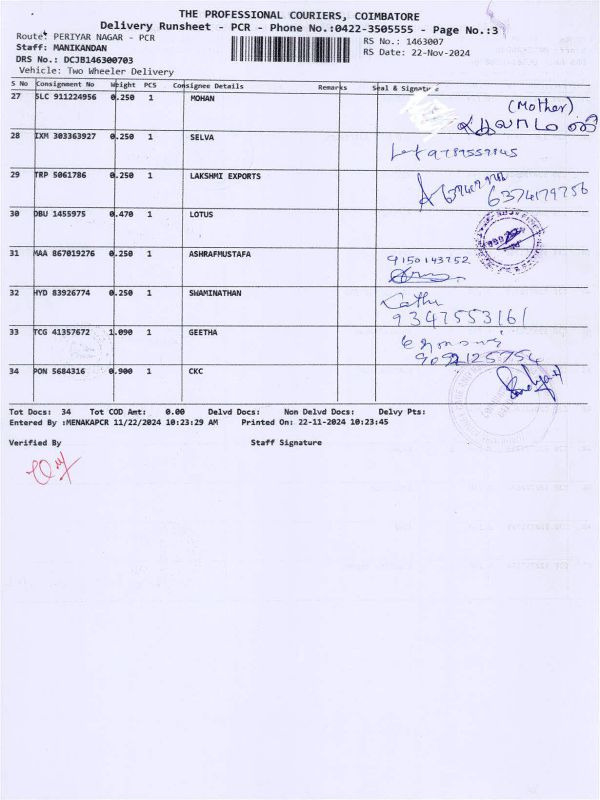 THE PROFESSIONAL COURIERS, COIMBATORE
Delivery Runsheet - PCR - Phone No.:0422-3505555 - Page No.:3
Route: PERIYAR NAGAR - PCR RS No.: 1463007
Staff: MANIKANDAN RS Date: 22-Nov-2024
DRS No.: DCJB146300703
Vehicle: Two Wheeler Delivery
S No Consignment No Weight PCS Consignee Details Remarks Seal & Signature
27 SLC 911224956 0.250 1 MOHAN (Mother)
28 IXM 303363927 0.250 1 SELVA
29 TRP 5061786 0.250 1 LAKSHMI EXPORTS 6374179756
30 DBU 1455975 0.470 1 LOTUS
31 MAA 867019276 0.250 1 ASHRAFMUSTAFA 9150143752
32 HYD 83926774 0.250 1 SHAMINATHAN
9347553161
33 TCG 41357672 1.090 1 GEETHA
34 PON 5684316 0.900 1 CKC
Tot Docs: 34 Tot COD Amt: 0.00 Delvd Docs: Non Delvd Docs: Delvy Pts:
Entered By :MENAKAPCR 11/22/2024 10:23:29 AM Printed On: 22-11-2024 10:23:45
Verified By Staff Signature